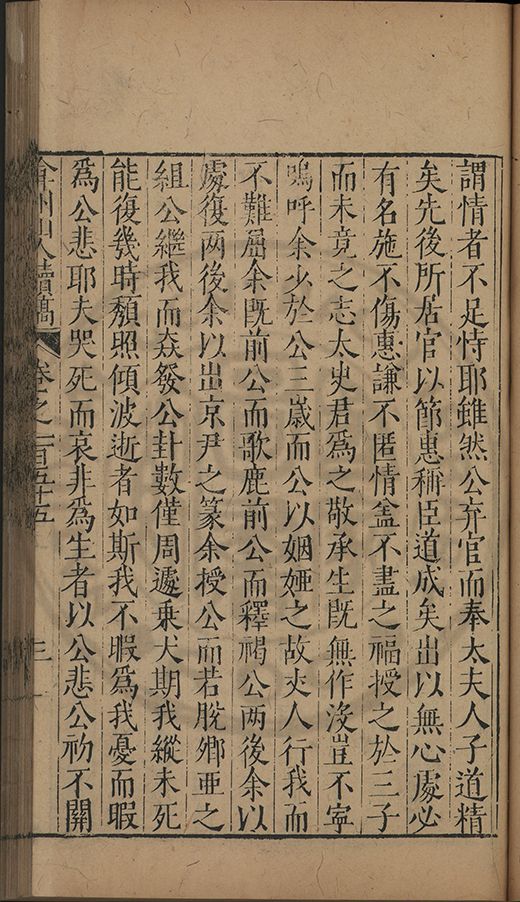 謂情者不足恃耶雖然公弃官而奉太夫人子道精
矣先後所居官以節惠稱臣道成矣出以無心處必
有名施不傷惠謙不匿情盒不盡之福授之於三子
而未竟之志太史君爲之敬承生旣無作沒豈不寧
嗚呼余少於公三歲而公以姻婭之故丈人行我而
不難屈余旣前公而歌鹿前公而釋褐公两後余以
處復两後余以出京尹之篆余授公而若脫鄉亜之
組公繼我而焱發公卦數僅周遽乗大期我縱未死
能復幾時頽照傾波逝者如斯我不暇爲我憂而暇
爲公悲耶夫哭死而哀非爲生者以公悲公初不關
弇州山人續稿
卷之一百五十五
三